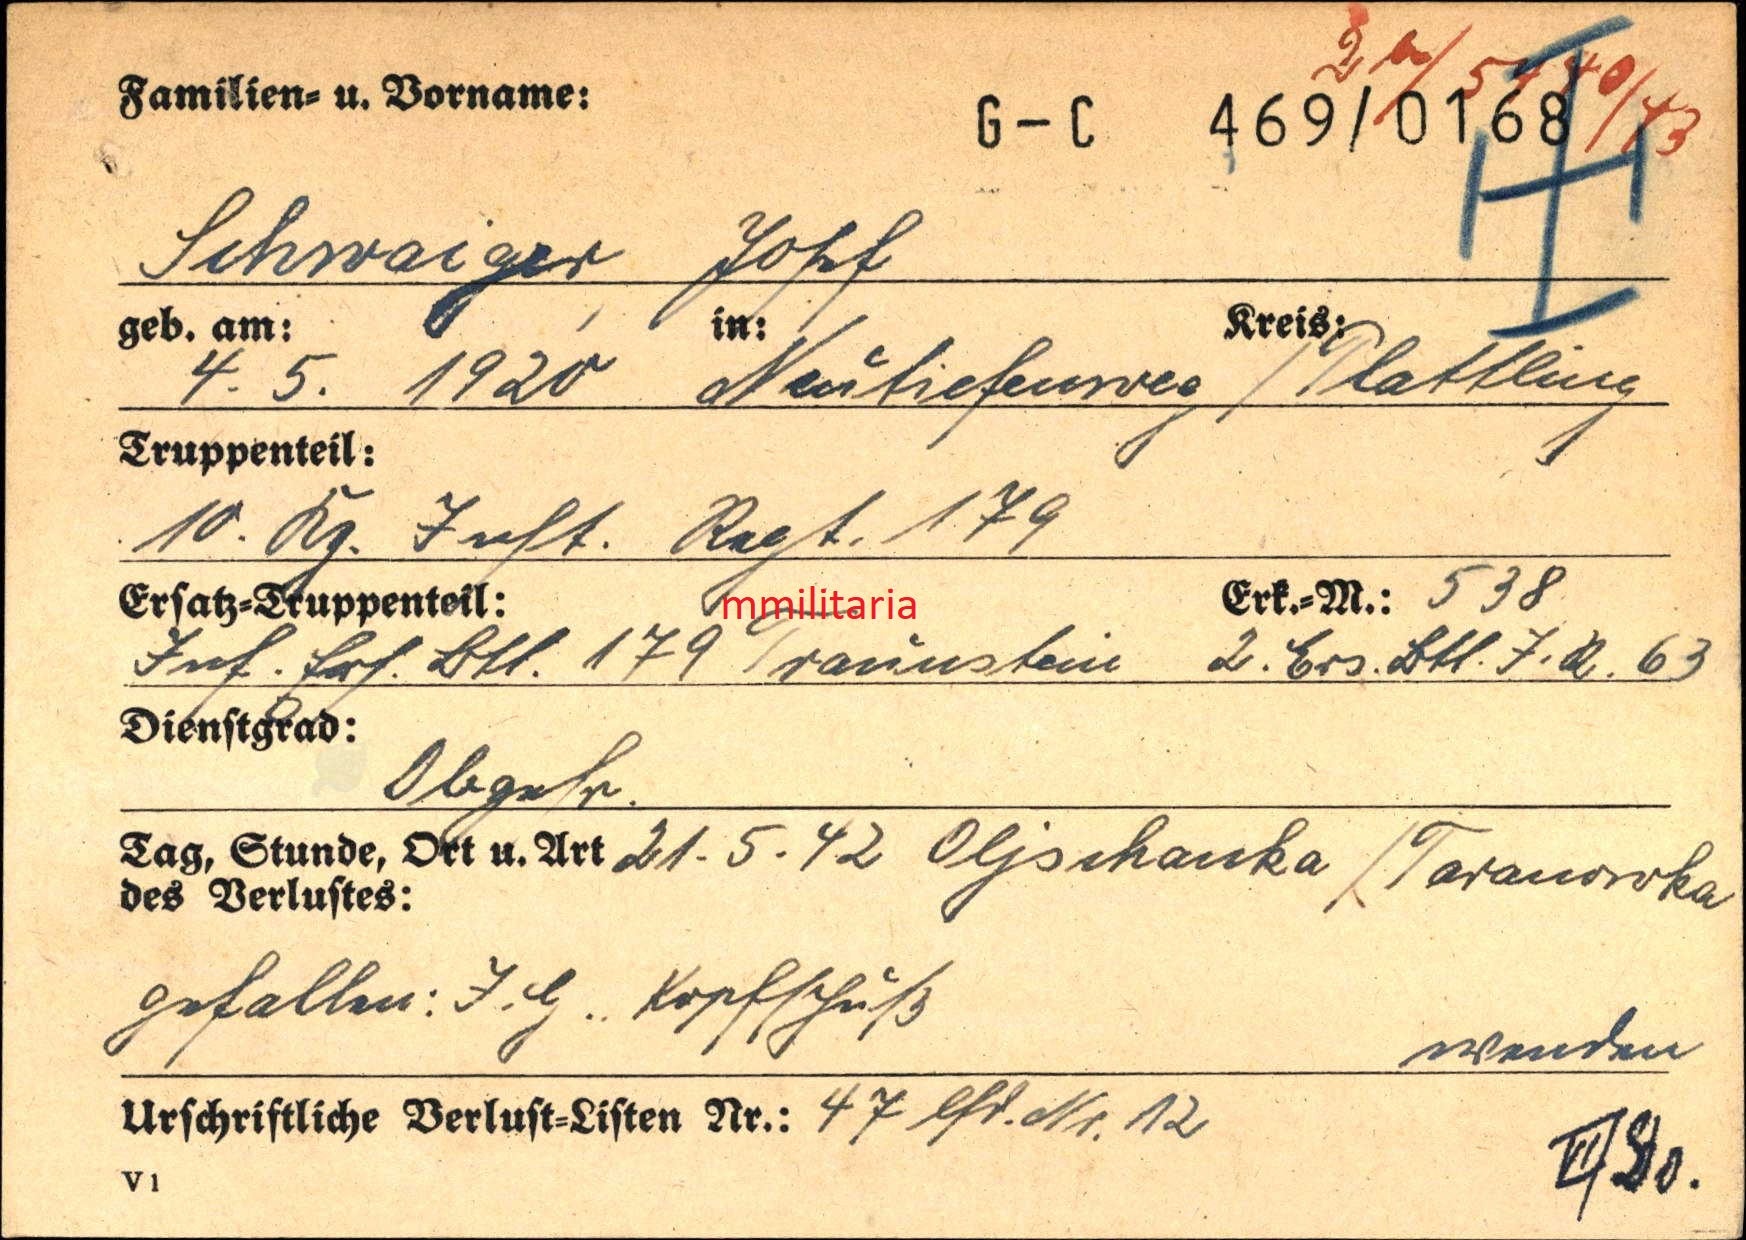 Familien- u. Vorname:
G-C 469/0168
Schwaiger Josef
geb. am: in: Kreis:
4. 5. 1920 Neutiefenweg / Plattling
Truppenteil:
10. Kp. Inft. Regt. 179
Ersatz-Truppenteil: Erk.-M.: 538
mmilitaria
Inf. Ers. Btl. 179 Traunstein 2. Ers. Btl. I.R. 63
Dienstgrad:
Obgefr.
Tag, Stunde, Ort u. Art 21. 5. 42 Oljschanka / Taranowka
des Verlustes:
gefallen: I.G. Kopfschuß
wenden
Urschriftliche Verlust-Listen Nr.: 47 lfd. Nr. 12
V 1